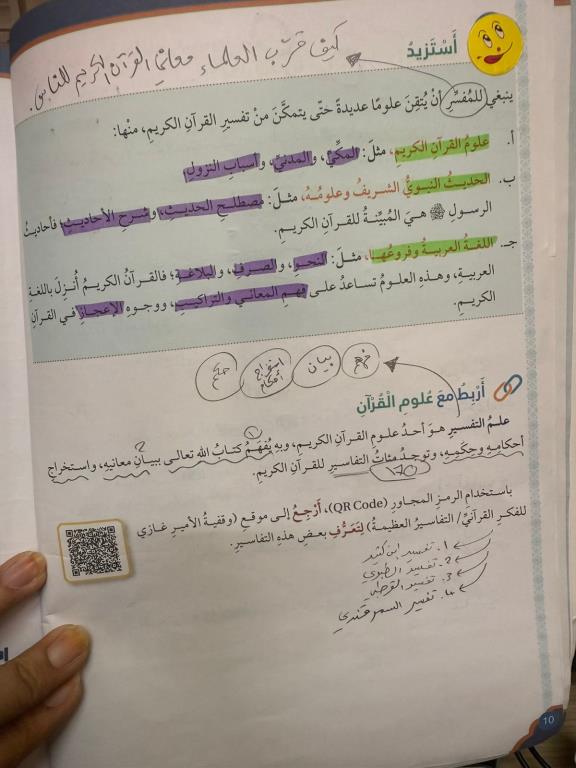 كيف قرّب العلماء معاني القرآن الكريم للناس.
أَسْتَزيدُ
ينبغي للمُفسِّرِ أنْ يُتقِنَ علومًا عديدةً حتّى يتمكَّنَ مِنْ تفسيرِ القرآنِ الكريمِ، منْها:
أ. علومُ القرآنِ الكريمِ، مثلَ: المكّيِّ، والمدنيِّ، وأسبابِ النزولِ.
ب. الحديثُ النبويُّ الشريفُ وعلومُهُ، مثلَ: مصطلحِ الحديثِ، وشرحِ الأحاديثِ؛ فأحاديثُ
الرسولِ ﷺ هيَ المُبيِّنةُ للقرآنِ الكريمِ.
جـ. اللغةُ العربيةُ وفروعُها، مثلَ: النحوِ، والصرفِ، والبلاغةِ؛ فالقرآنُ الكريمُ أُنزِلَ باللغةِ
العربيةِ، وهذهِ العلومُ تساعدُ على فهمِ المعاني والتراكيبِ، ووجوهِ الإعجازِ في القرآنِ
الكريمِ.
فهم بيان استخراج أحكام حكم
أَرْبِطُ معَ عُلومِ الْقُرْآنِ
علمُ التفسيرِ هوَ أحدُ علومِ القرآنِ الكريمِ، وبهِ يُفهَمُ كتابُ اللهِ تعالى ببيانِ معانيهِ، واستخراجِ
أحكامِهِ وحِكَمِهِ، وتوجدُ مئاتُ التفاسيرِ للقرآنِ الكريمِ.
170
باستخدامِ الرمزِ المجاورِ (QR Code)، أَرْجِعُ إلى موقعِ (وقفيةُ الأميرِ غازي
للفكرِ القرآنيِّ/ التفاسيرُ العظيمةُ) لِتَعَرُّفِ بعضِ هذهِ التفاسيرِ.
1. تفسير ابن كثير
2. تفسير الطبري
3. تفسير القرطبي
4. تفسير السمرقندي
10